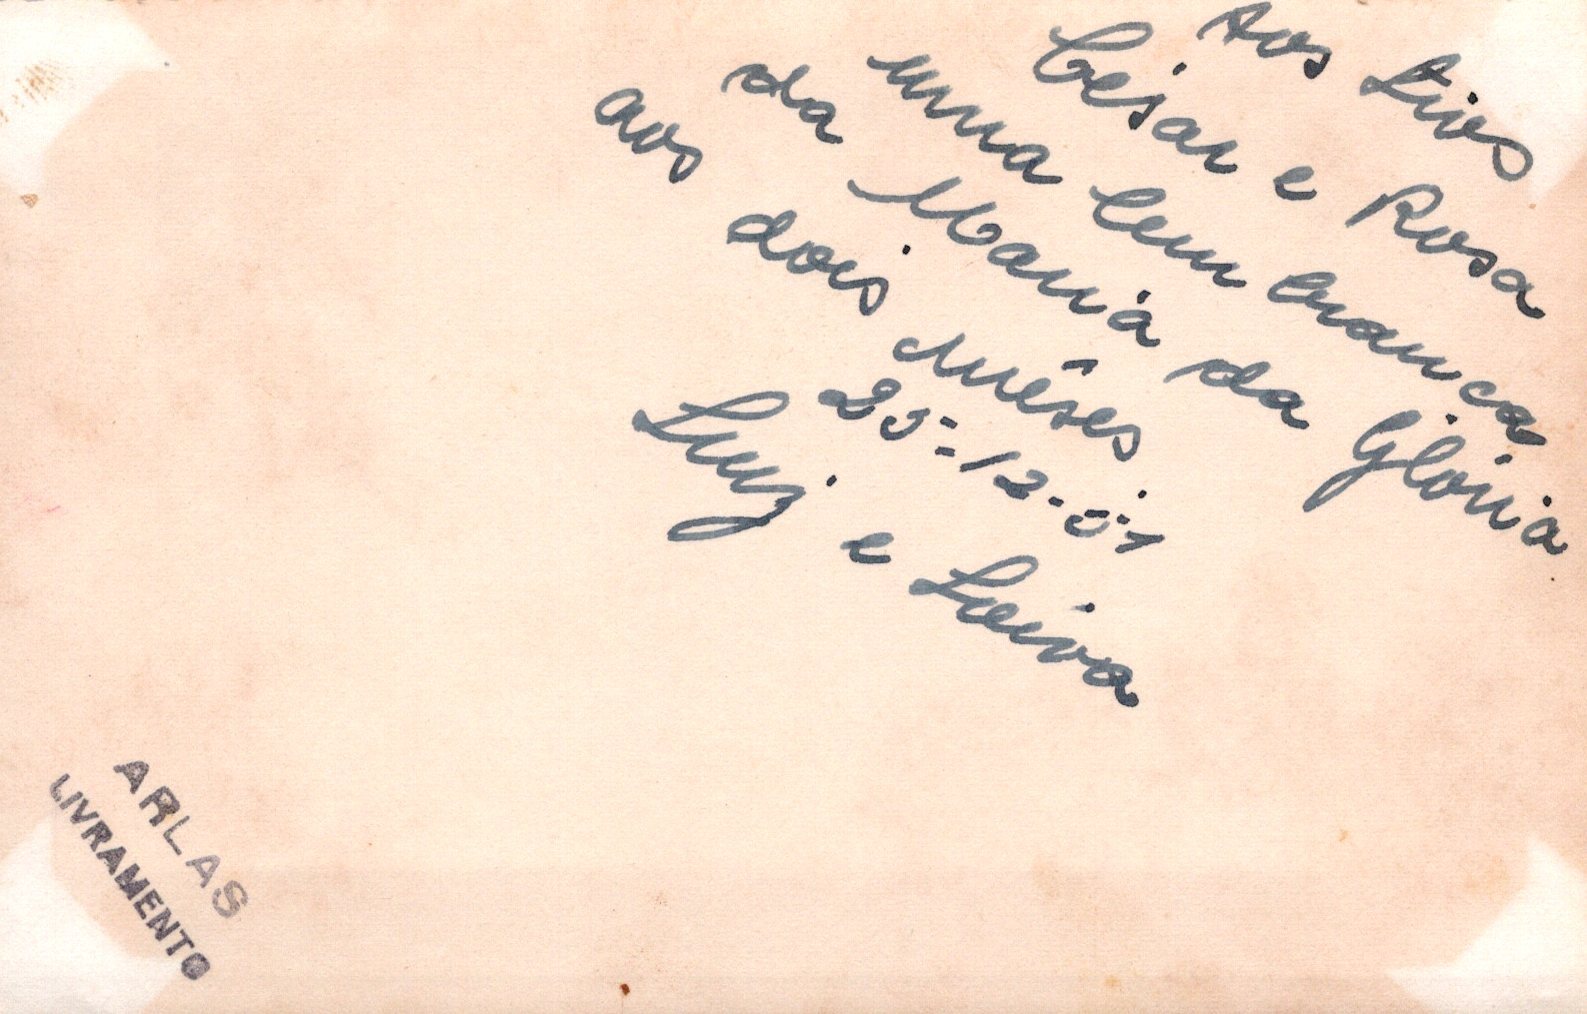 Aos tios
César e Rosa
uma lembrança
da Maria da Glória
aos dois mêses
25-12-51
Luiz e Loiva
ARLAS
LIVRAMENTO